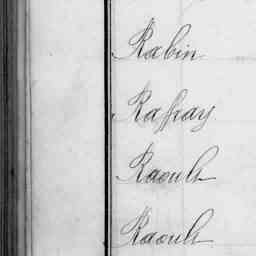 Rabin
Raffray
Raoult
Raoult